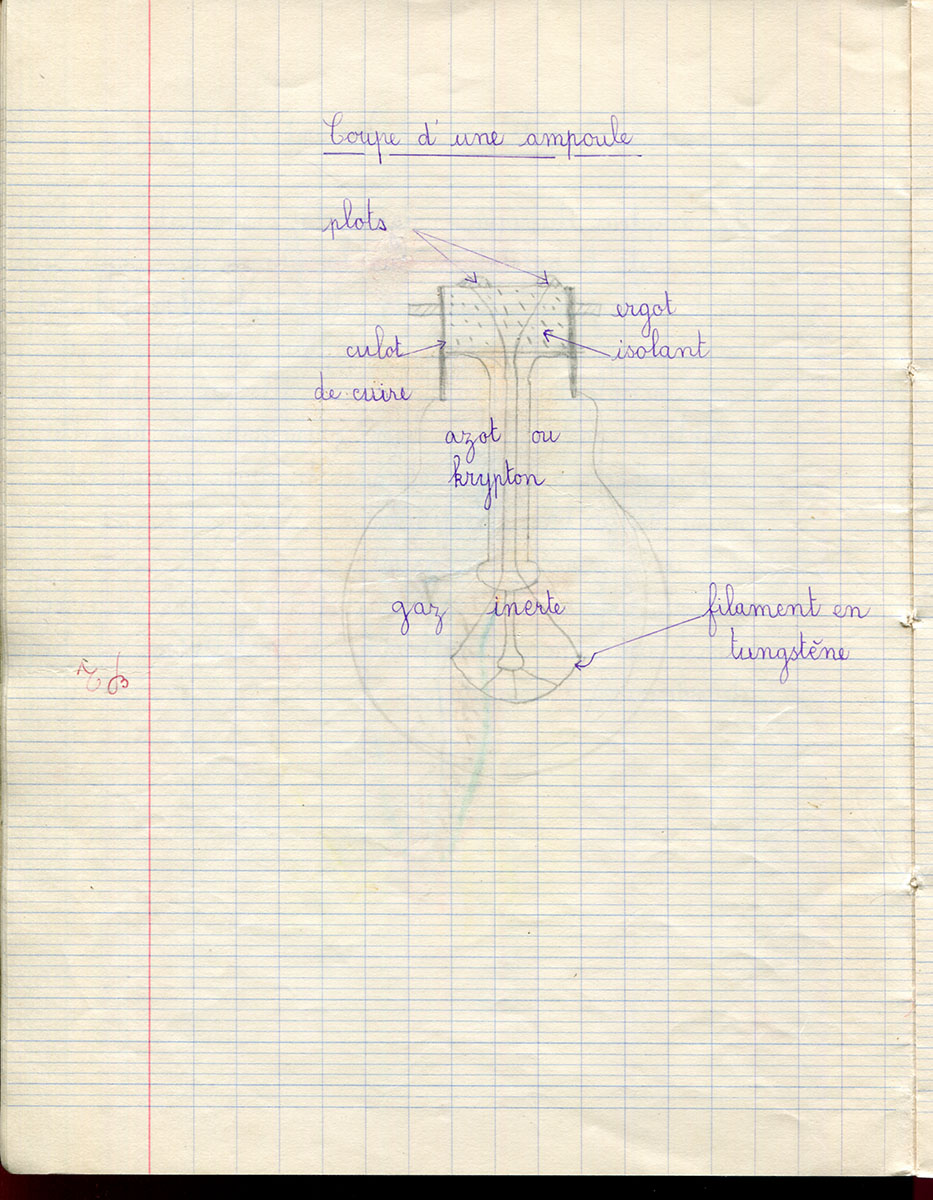 Coupe d'une ampoule
plots
ergot
culot
isolant
de cuire
azot ou
krypton
gaz inerte
filament en
tungstène